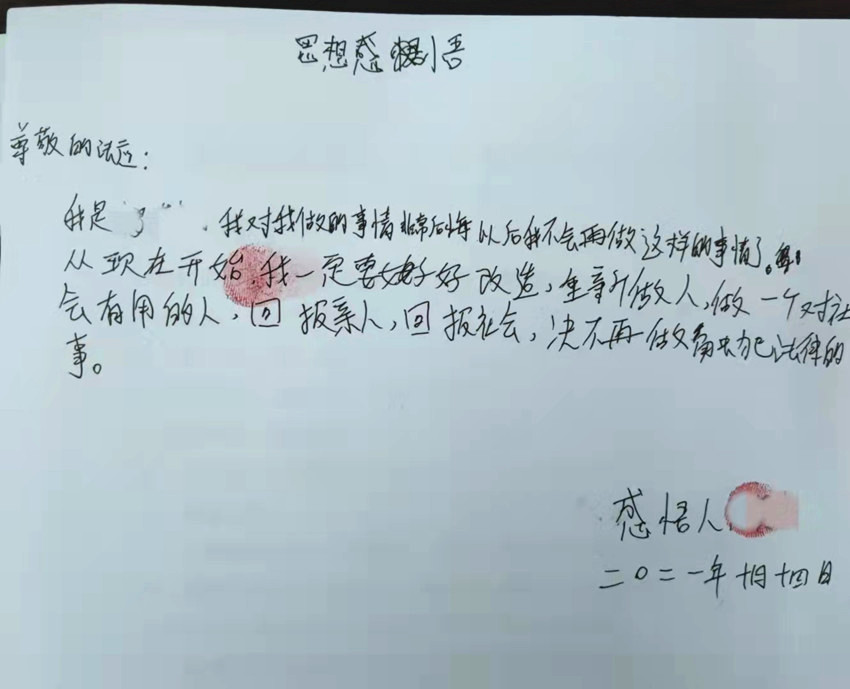 思想感悟
尊敬的法庭:
我是 ,我对我做的事情非常后悔以后我不会再做这样的事情了。
从现在开始,我一定要好好改造,重新做人,做一个对社
会有用的人,回报亲人,回报社会,决不再做触犯法律的
事。
感悟人
二〇二一年十月十四日